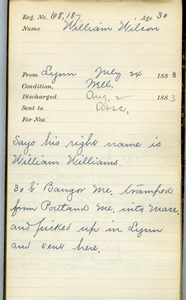 Reg. No. 68,187 Age 30
Name William Wilson
From Lynn July 24 1883
Condition, Well.
Discharged Aug. 2 1883
Sent to
For Nos.
Says his right name is
William Williams.
30 b' Bangor Me, tramped
from Portland Me. into Mass.
and picked up in Lynn
and sent here.